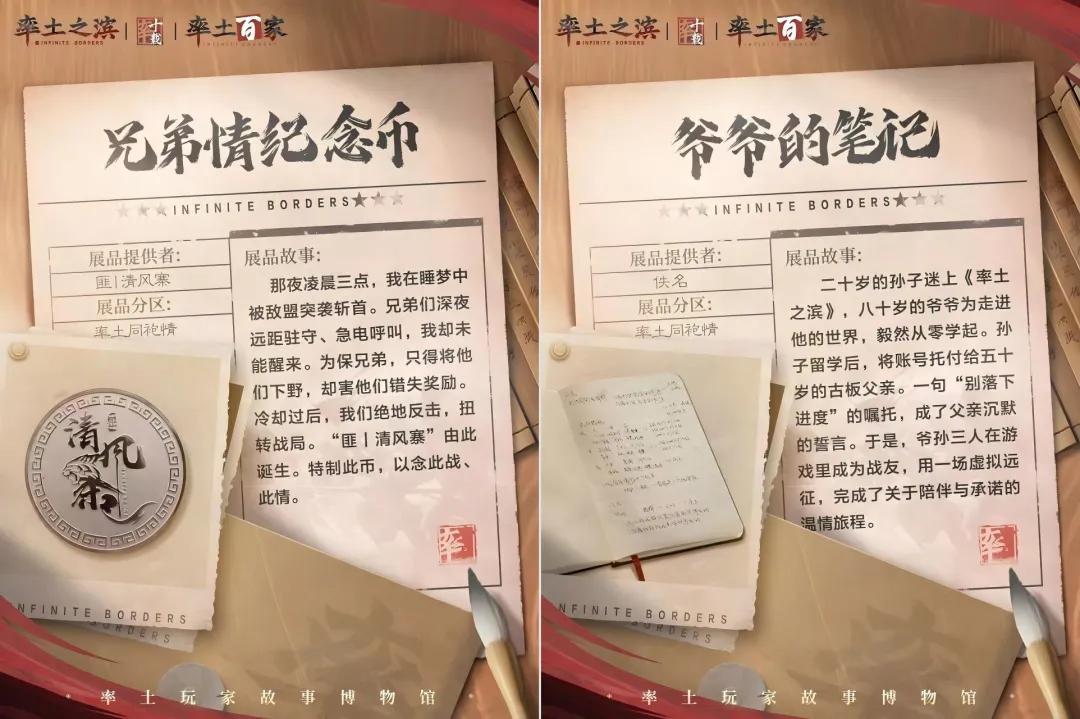 率土之滨 十载 率土百家
INFINITE BORDERS
兄弟情纪念币
INFINITE BORDERS
展品提供者:
匪|清风寨
展品分区:
率土同袍情
展品故事:
那夜凌晨三点，我在睡梦中
被敌盟突袭斩首。兄弟们深夜
远距驻守、急电呼叫，我却未
能醒来。为保兄弟，只得将他
们下野，却害他们错失奖励。
冷却过后，我们绝地反击，扭
转战局。“匪|清风寨”由此
诞生。特制此币，以念此战、
此情。
清风寨
率
INFINITE BORDERS
BORDERS
率土玩家故事博物馆
率土之滨 十载 率土百家
INFINITE BORDERS
爷爷的笔记
INFINITE BORDERS
展品提供者:
佚名
展品分区:
率土同袍情
展品故事:
二十岁的孙子迷上《率土
之滨》，八十岁的爷爷为走进
他的世界，毅然从零学起。孙
子留学后，将账号托付给五十
岁的古板父亲。一句“别落下
进度”的嘱托，成了父亲沉默
的誓言。于是，爷孙三人在游
戏里成为战友，用一场虚拟远
征，完成了关于陪伴与承诺的
温情旅程。
率
INFINITE BORDERS
BORDERS
率土玩家故事博物馆